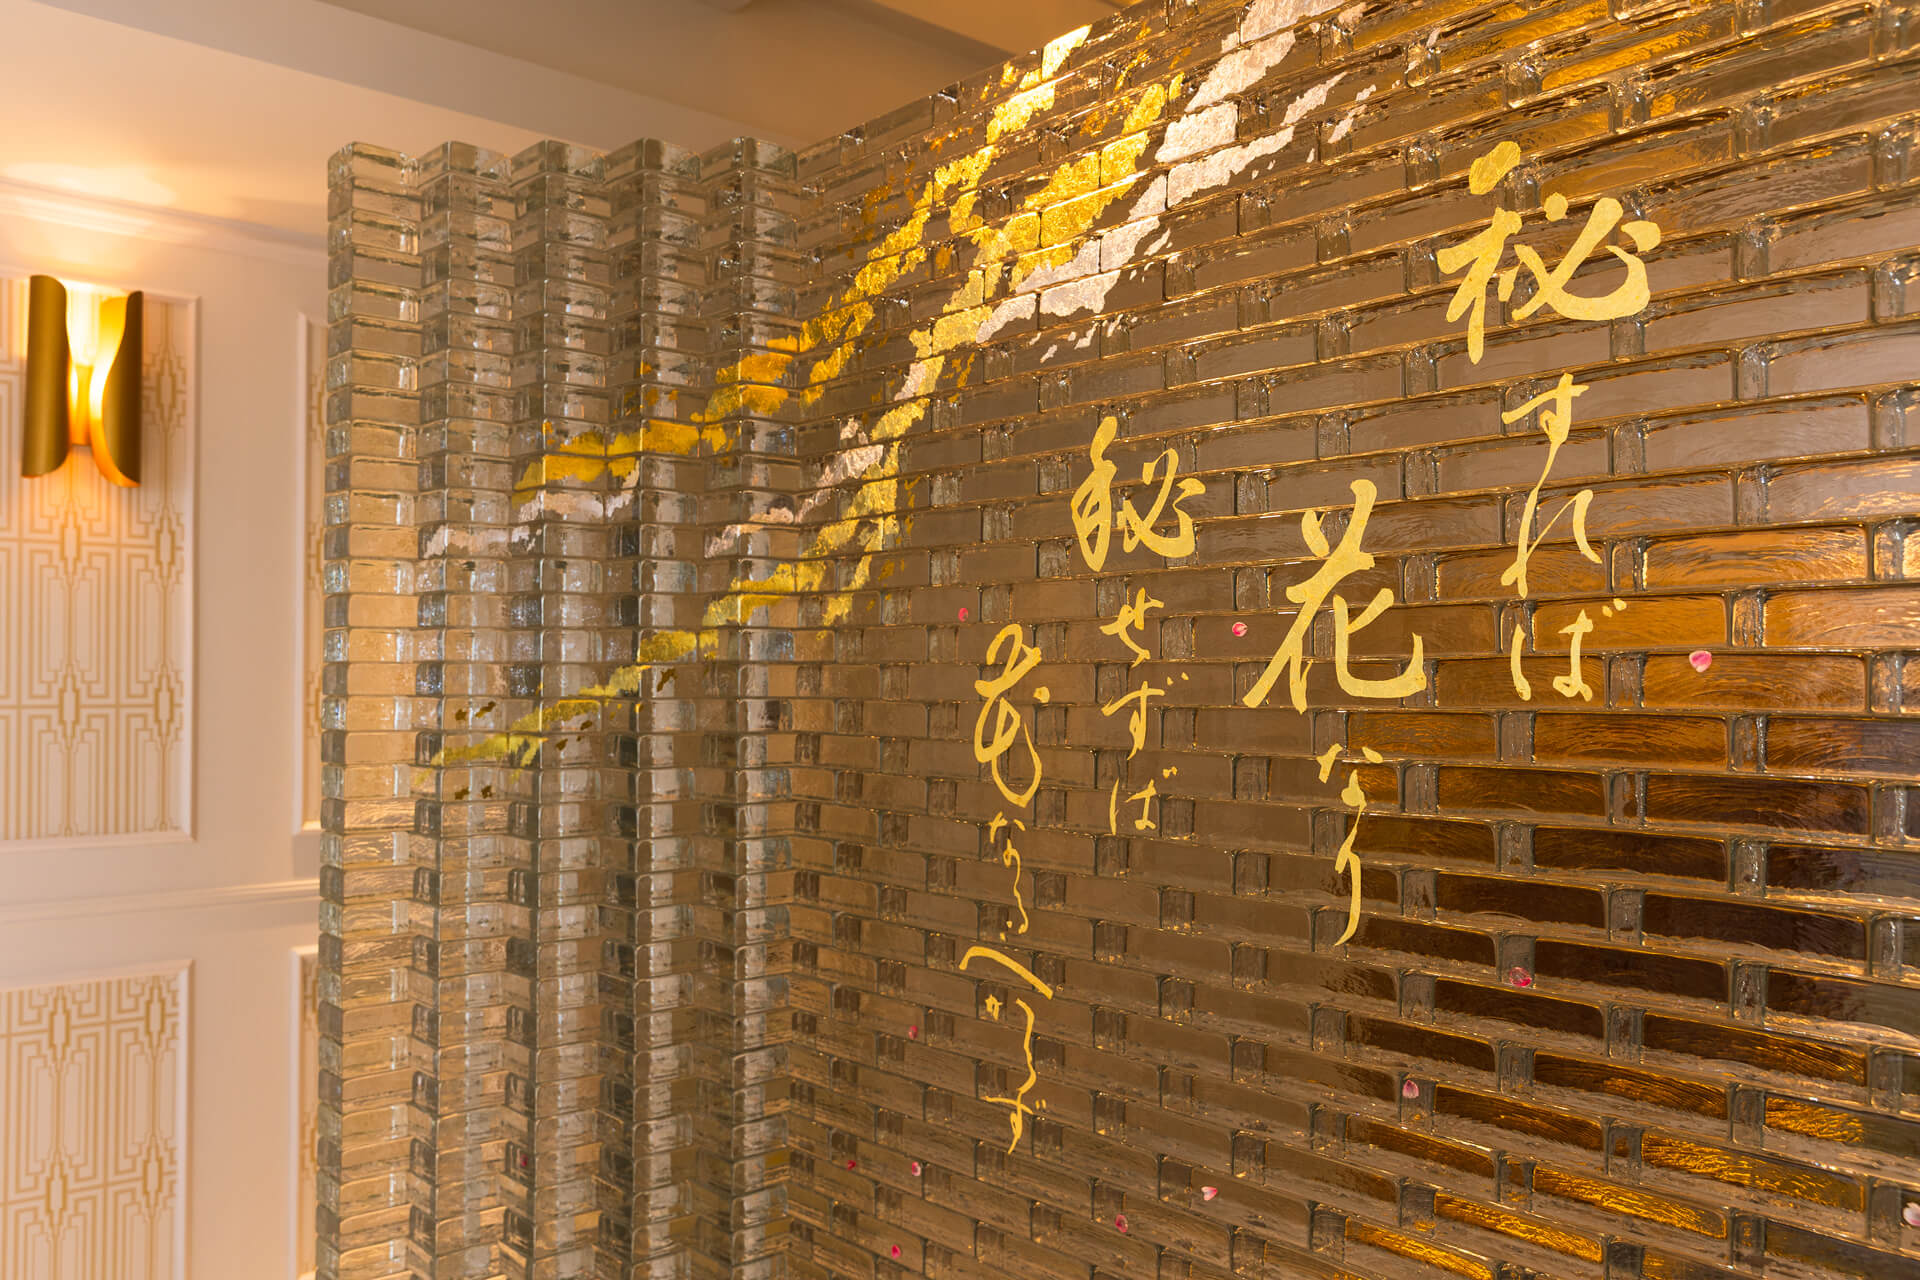 秘すれば
花なり
秘せずば
花なるべからず